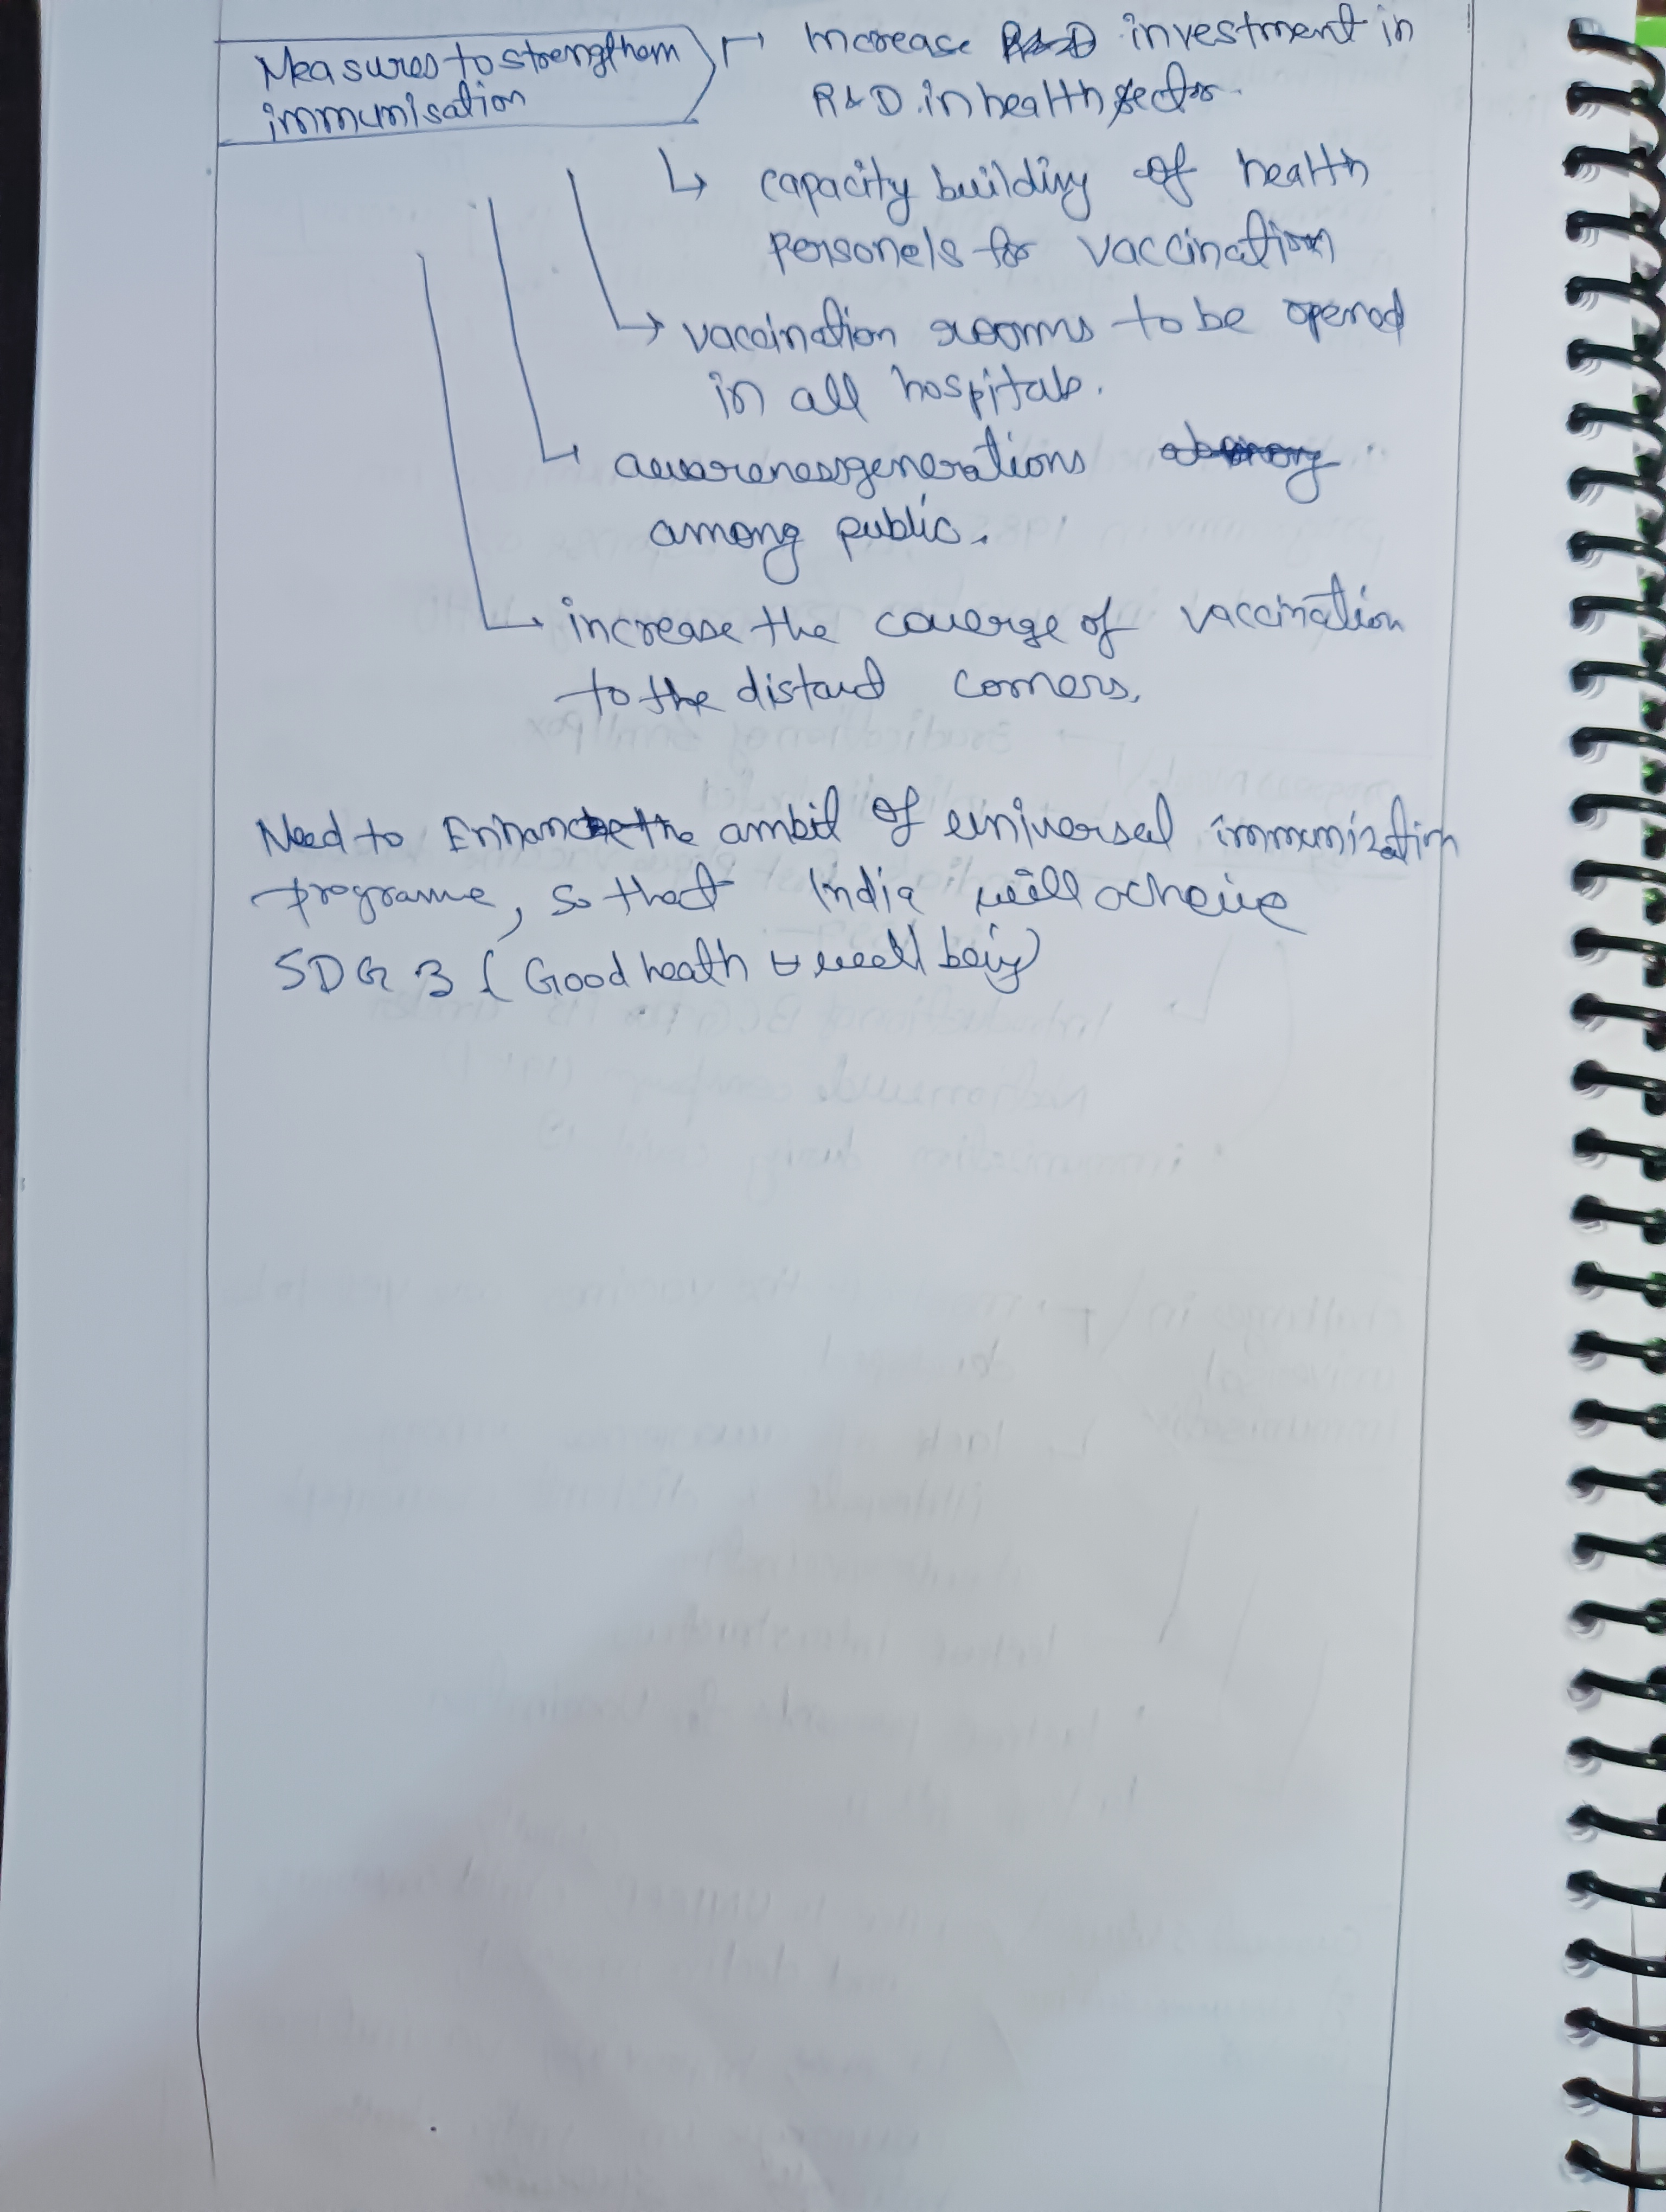 Measures to strengthem
immunisation
Increase R&D investment in
R&D in health sector.
capacity building of health
personels for vaccination
vaccination rooms to be opened
in all hospitals.
awareness generations
among public.
increase the coverge of vaccination
to the distant corners.
Need to Enhance the ambit of universal immunization
programe, so that India will acheive
SDG 3 (Good heath & well being)